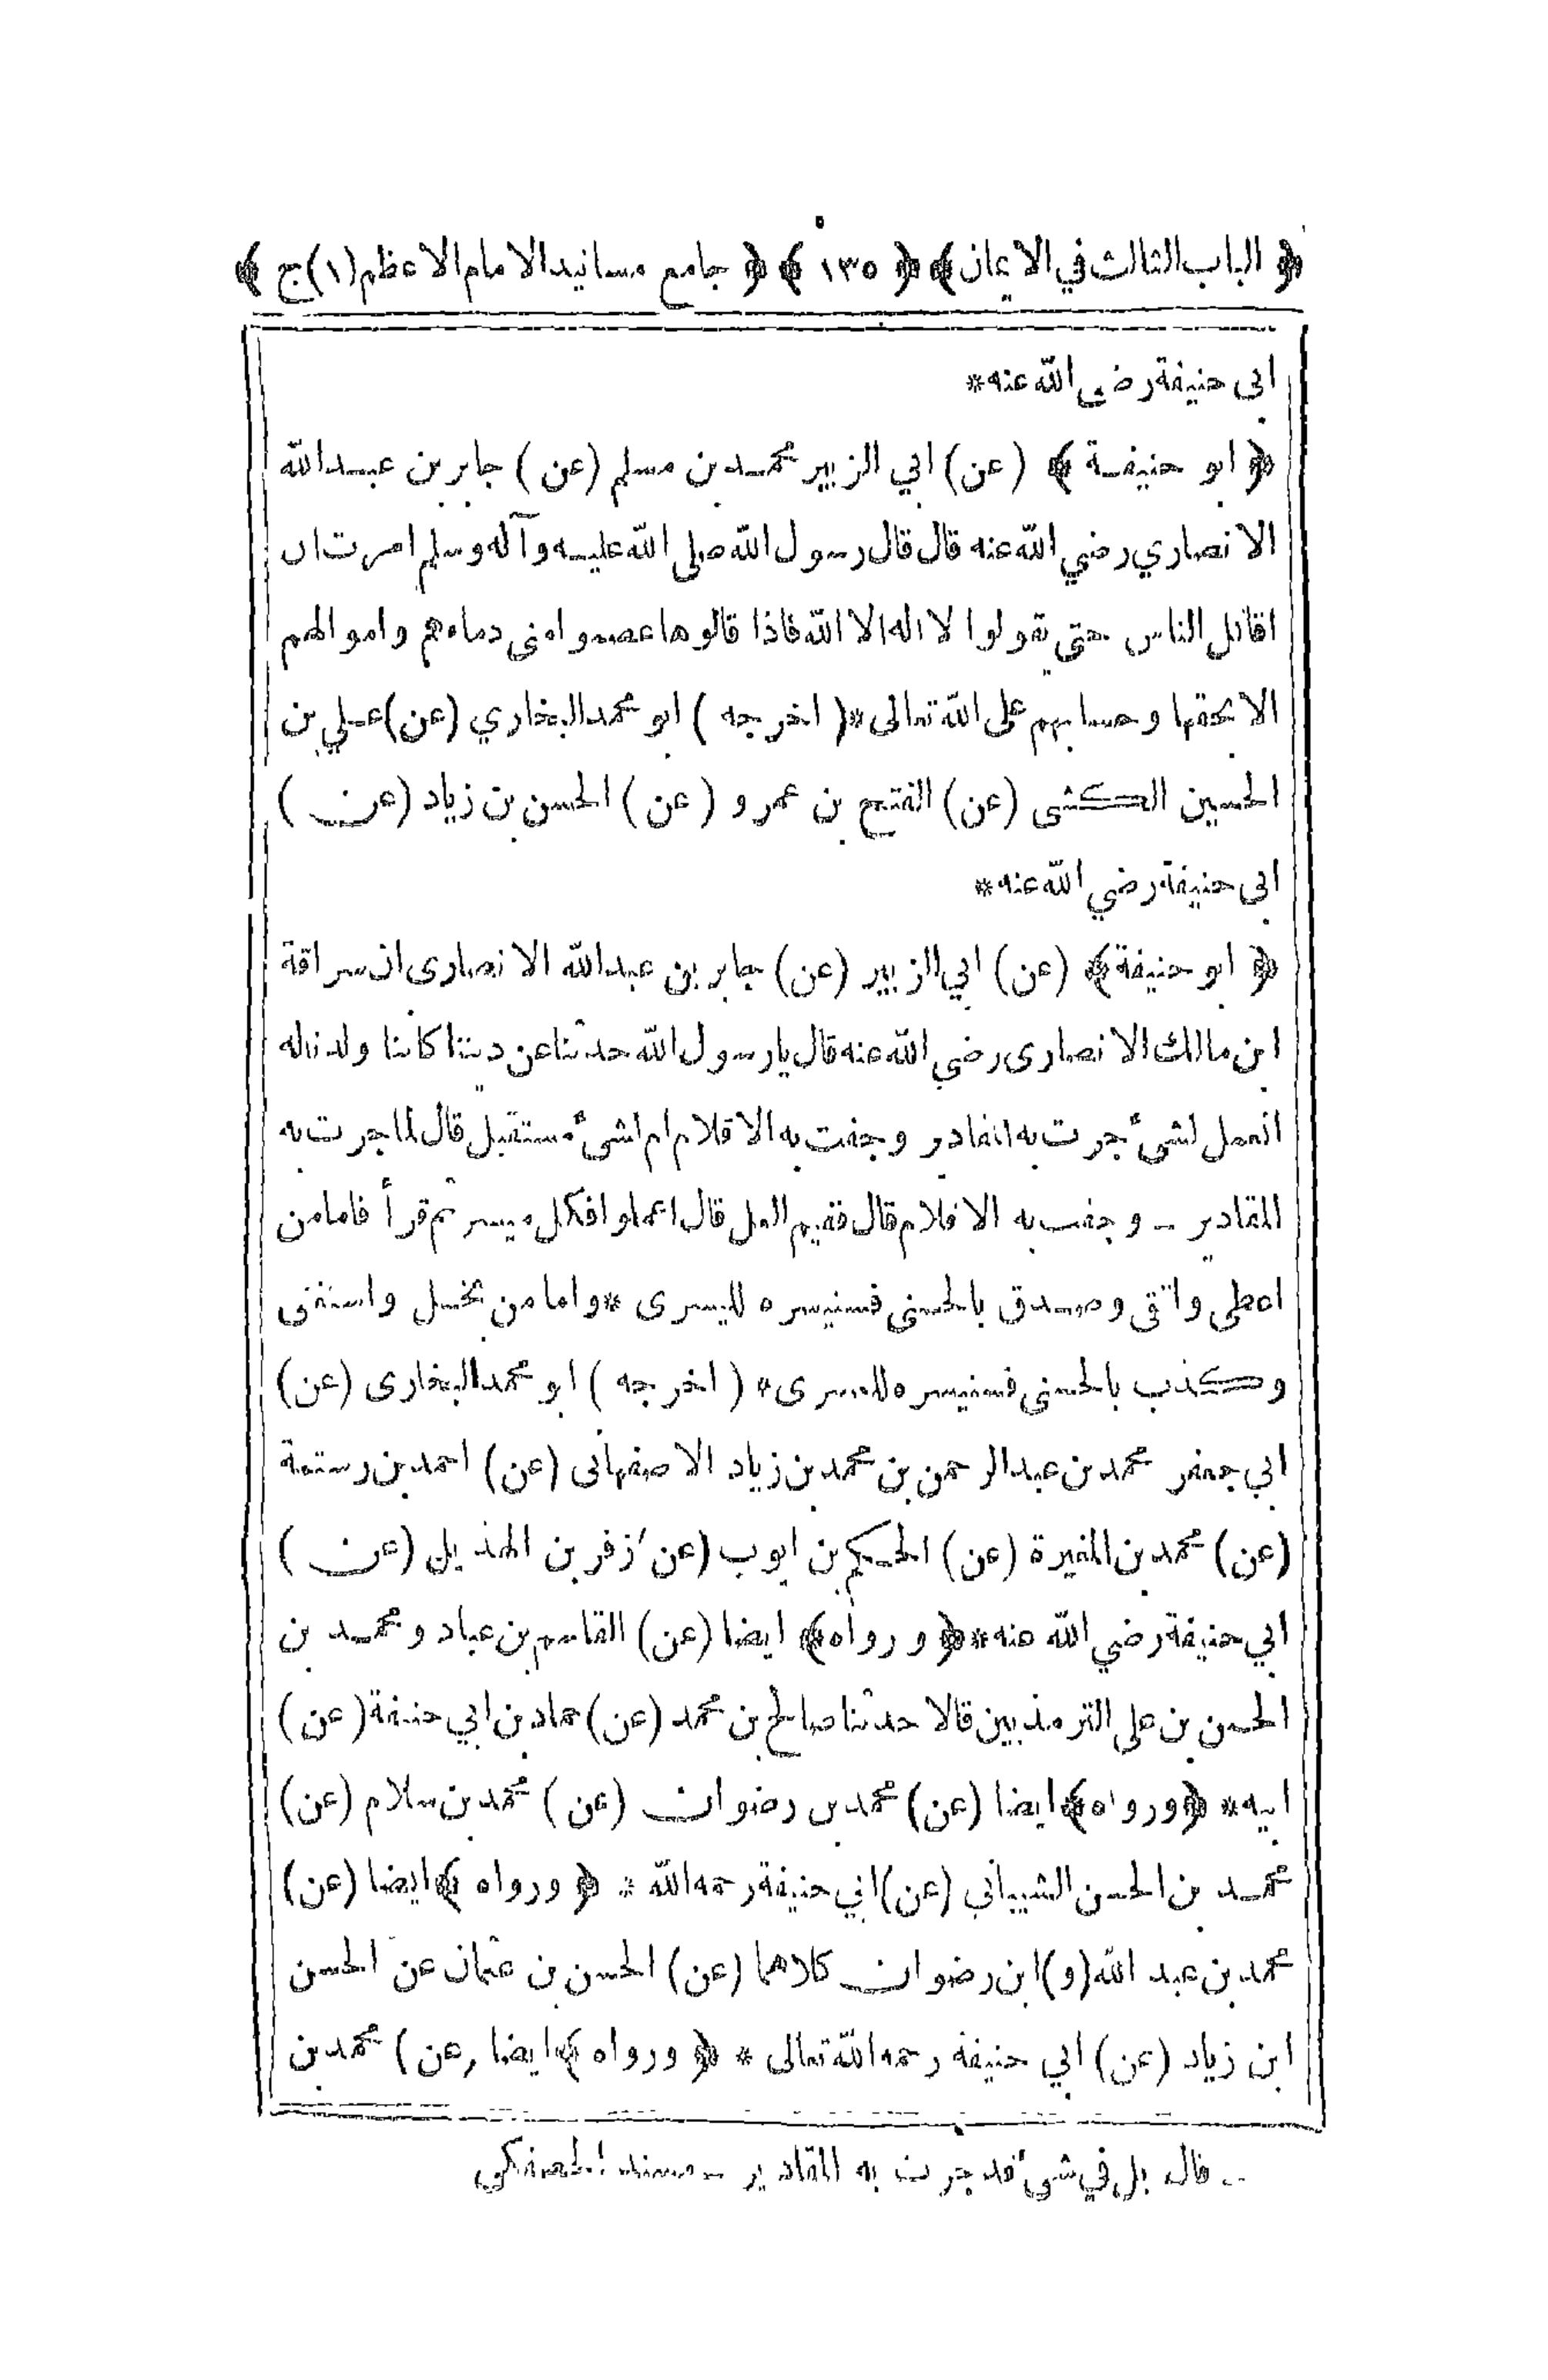 ﴿ الباب الثالث في الايمان ﴾ ﴿ ١٣٥ ﴾ ﴿ جامع مسانيد الامام الاعظم (١) ج ﴾
ابى حنيفة رضي الله عنه *
﴿ ابو حنيفة ﴾ (عن) ابي الزبير محمد بن مسلم (عن) جابر بن عبد الله
الانصاري رضي الله عنه قال قال رسول الله صلى الله عليه وآله وسلم امرت ان
اقاتل الناس حتى يقولوا لا اله الا الله فاذا قالوها عصموا منى دماءهم واموالهم
الا بحقها وحسابهم على الله تعالى * ( اخرجه ) ابو محمد البخاري (عن) علي بن
الحسين الكشى (عن) الفتح بن عمرو (عن) الحسن بن زياد (عن)
ابى حنيفة رضي الله عنه *
﴿ ابو حنيفة ﴾ (عن) ابي الزبير (عن) جابر بن عبد الله الانصارى ان سراقة
ابن مالك الانصارى رضي الله عنه قال يا رسول الله حدثنا عن ديننا كاننا ولدنا له
انعمل لشىٔ جرت به المقادير وجفت به الاقلام ام لشىٔ مستقبل قال لما جرت به
المقادير ــ وجفت به الاقلام قال ففيم العمل قال اعملوا فكل ميسر ثم قرأ فاما من
اعطى واتقى وصدق بالحسنى فسنيسره لليسرى * واما من بخل واستغنى
وكذب بالحسنى فسنيسره للعسرى * ( اخرجه ) ابو محمد البخارى (عن)
ابي جعفر محمد بن عبد الرحمن بن محمد بن زياد الاصفهانى (عن) احمد بن رستمة
(عن) محمد بن المغيرة (عن) الحكم بن ايوب (عن زفر بن الهذيل (عن)
ابي حنيفة رضي الله عنه * ﴿ ورواه ﴾ ايضا (عن) القاسم بن عباد ومحمد بن
الحسن بن على الترمذيين قالا حدثنا صالح بن محمد (عن) حماد بن ابي حنيفة (عن)
ابيه * ﴿ ورواه ﴾ ايضا (عن) محمد بن رضوان (عن) محمد بن سلام (عن)
محمد بن الحسن الشيباني (عن) ابي حنيفة رحمه الله * ﴿ ورواه ﴾ ايضا (عن)
محمد بن عبد الله (و) ابن رضوان كلاهما (عن) الحسن بن عثمان عن الحسن
ابن زياد (عن) ابي حنيفة رحمه الله تعالى * ﴿ ورواه ﴾ ايضا (عن) محمد بن
ــ قال بل في شىٔ قد جرت به المقادير ــ مسند الحصفكي